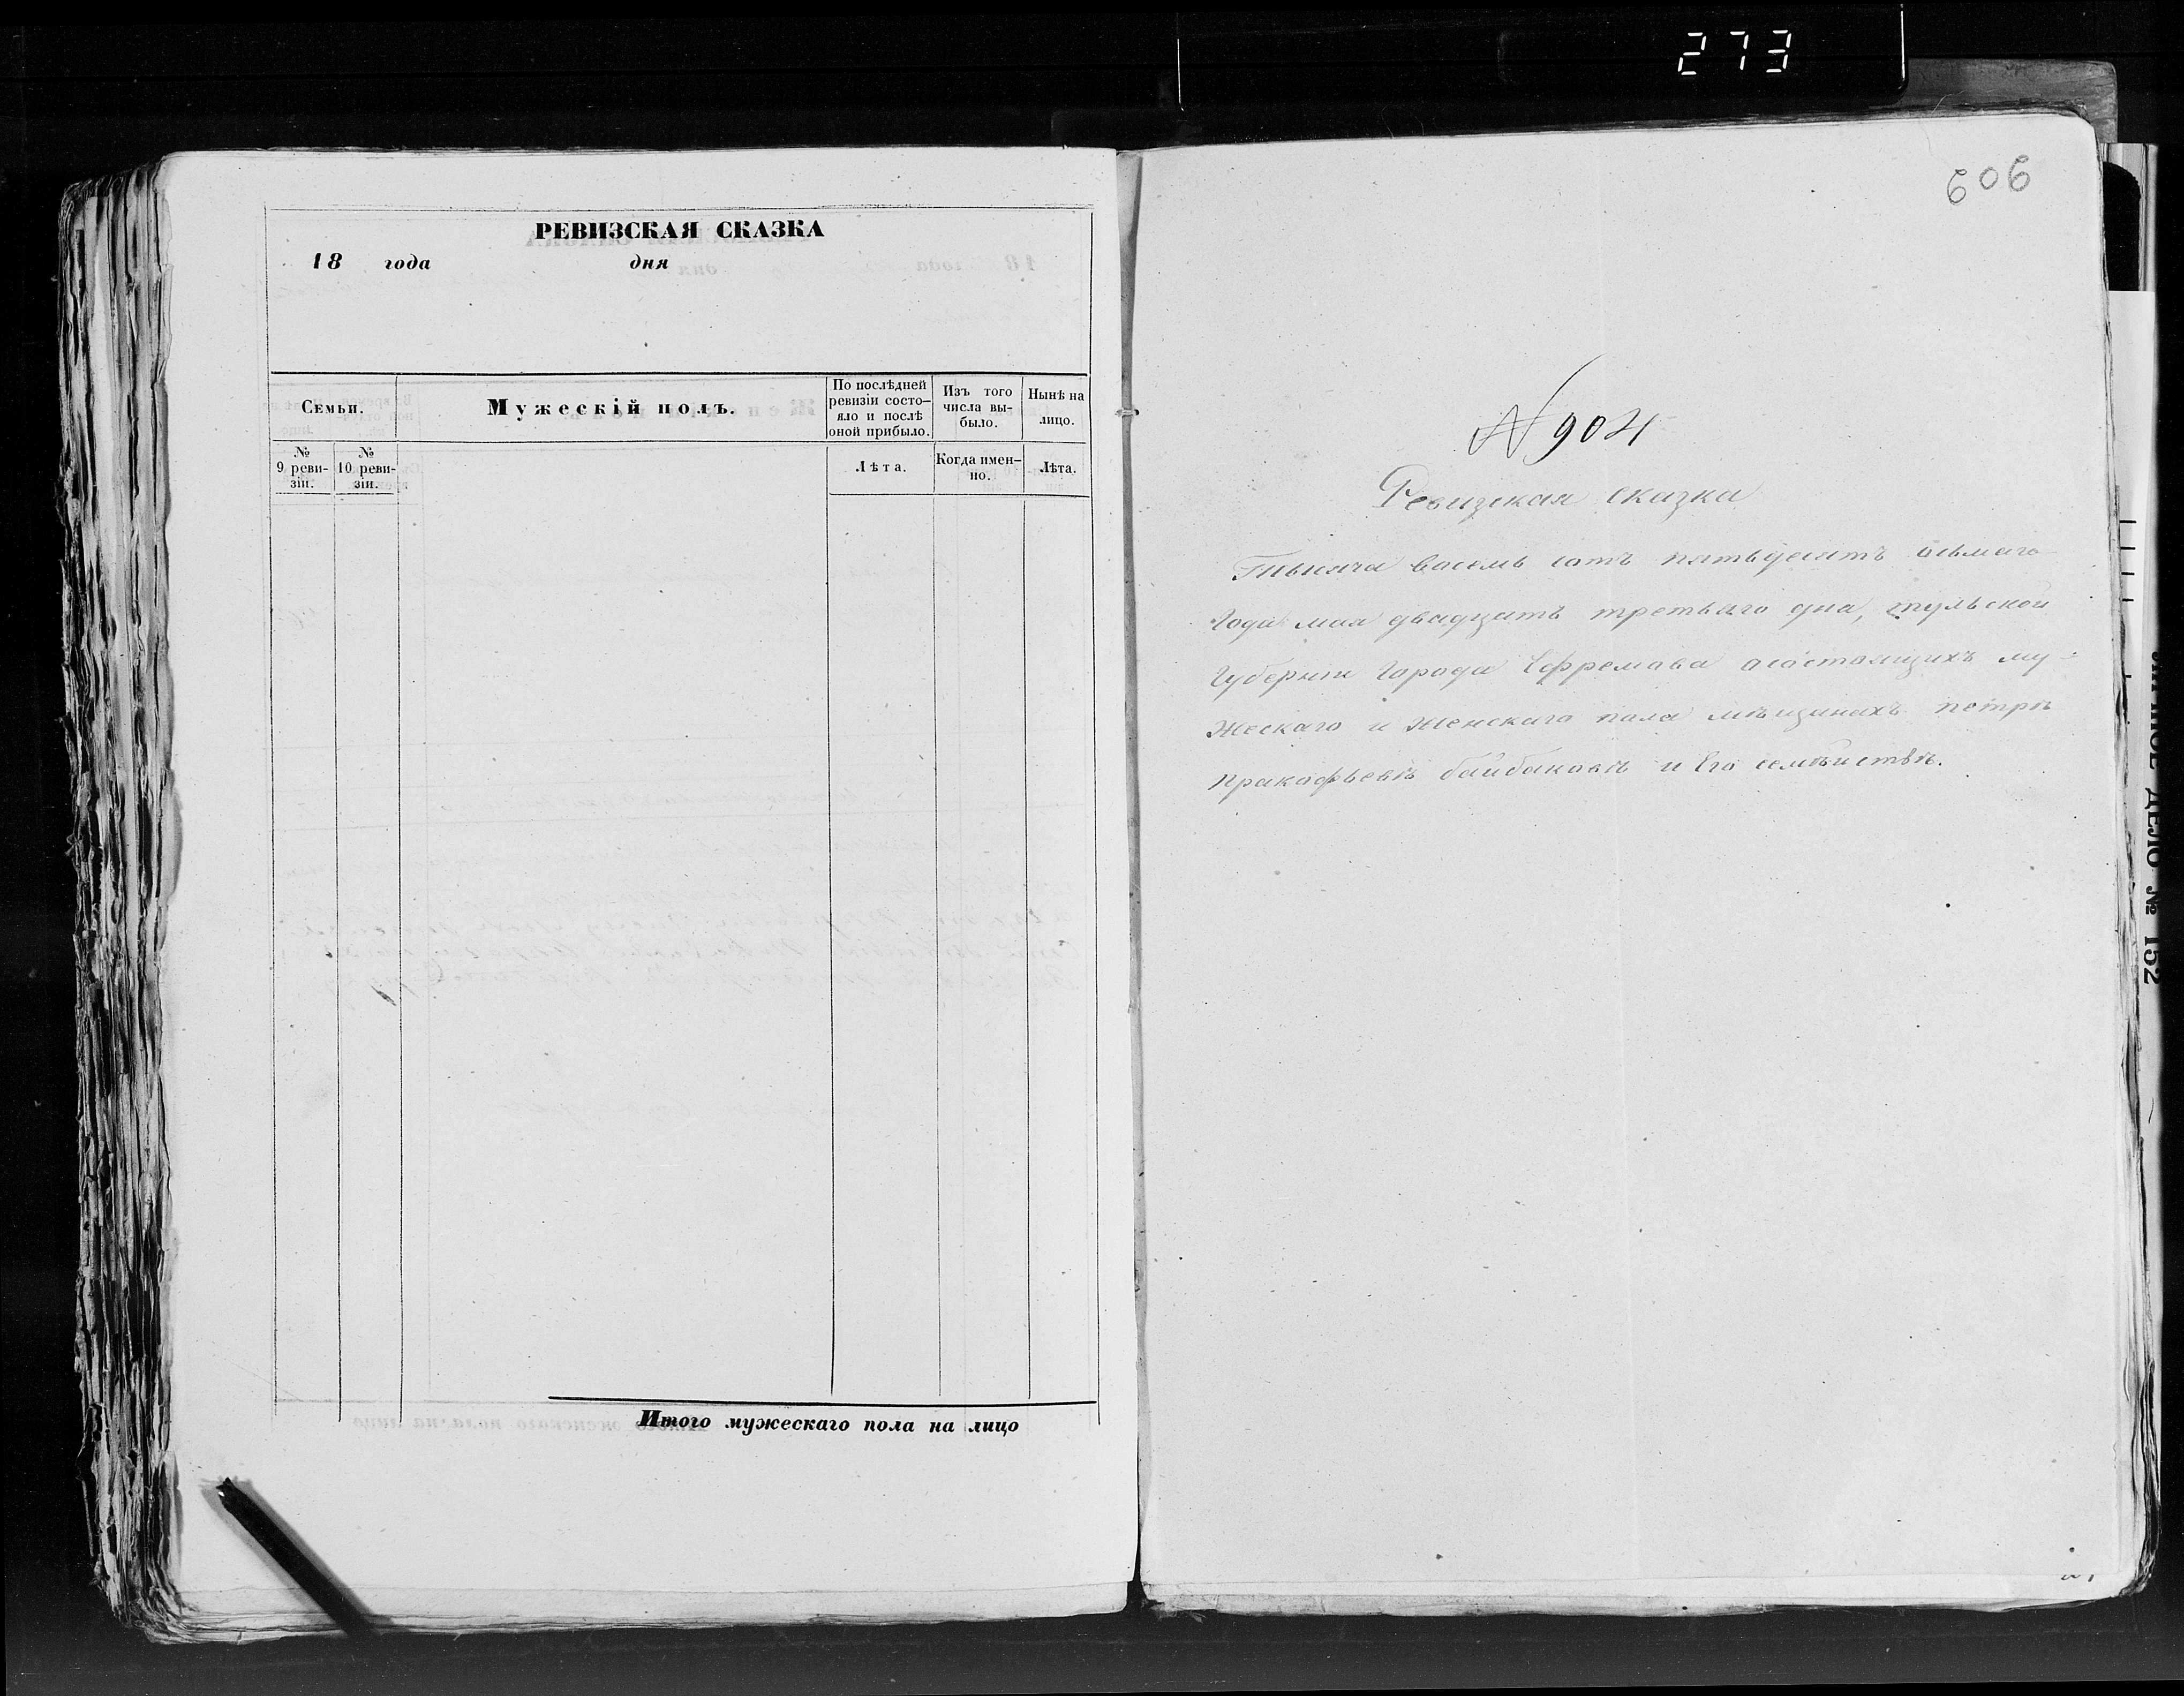 273
РЕВИЗСКАЯ СКАЗКА
18 года дня
Семьи.
Мужескій полъ.
По послѣдней ревизіи состояло и послѣ оной прибыло.
Изъ того числа выбыло.
Нынѣ на лицо.
№ 9 ревизіи.
№ 10 ревизіи.
Лѣта.
Когда именно.
Лѣта.
Итого мужескаго пола на лицо
606
№ 904
Ревизкая сказка
Тысяча восемь сотъ пятьдесятъ осьмаго
Года мая двадцать третьяго дна, тульской
Губерніи Города Ефремова осостоящихъ му-
жескаго и женскаго пола мѣщинахъ петрѣ
пракофьевѣ байбаковѣ и Его семѣйствѣ.
ДЕЛО № 152